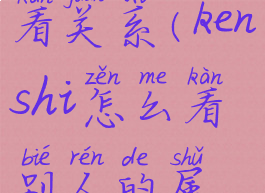 看关系(ken
zěn me kàn
shi怎么看
bié rén de shǔ
别人的属